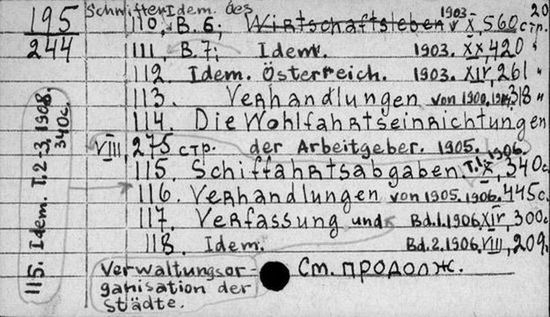 195
244
Schriften Idem. des 1903. 20
110, B. 6; Wirtschaftsleben X, 560 стр.
111. B. 7; Idem. 1903. XX, 420 "
112. Idem. Österreich. 1903. XIV, 261 "
113. Verhandlungen von 1900, 318 "
114. Die Wohlfahrtseinrichtungen
VIII, 275 стр. der Arbeitgeber. 1905.
115. Schiffahrtsabgaben, T. 1. 1906. X, 340 с.
116. Verhandlungen von 1905. 1906. 445 с.
117. Verfassung und Bd. 1. 1906. XIV, 300 с.
118. Idem. Bd. 2. 1906. VIII, 209.
Verwaltungsor-
ganisation der
Städte.
См. продолж.
115. Idem. T. 2-3, 1908.
340 с.